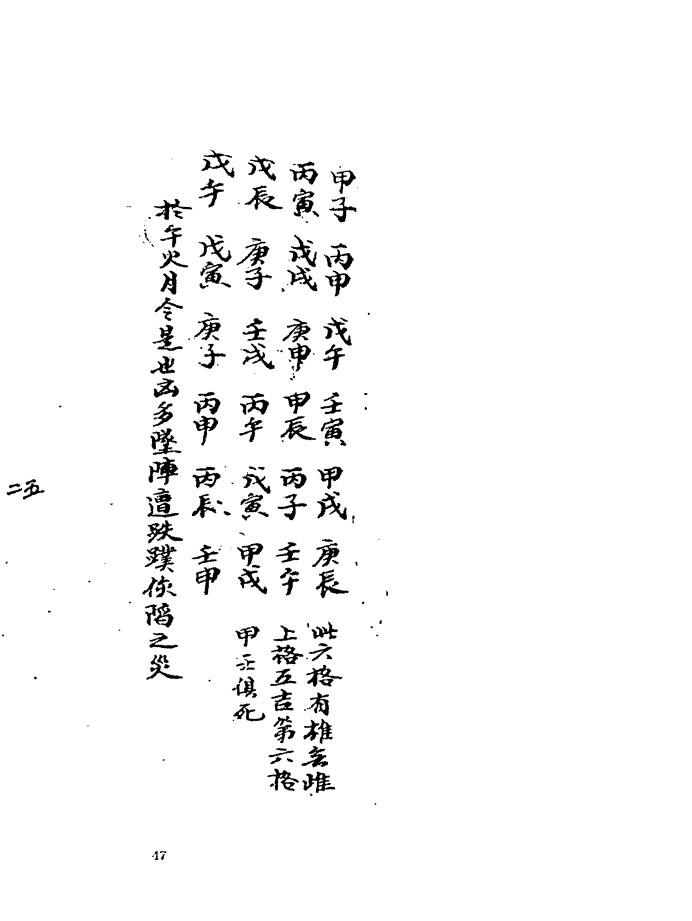 甲子 丙申 戊午 壬寅 甲戌 庚辰 此六格有雄无雌
丙寅 戊戌 庚申 甲辰 丙子 壬午 上格五吉第六格
戊辰 庚子 壬戌 丙午 戊寅 甲戌 甲壬俱死
戊午 戊寅 庚子 丙申 丙辰 壬申
扵午火月令是也凶多墜陣遭跌蹼陷之災
二五
47